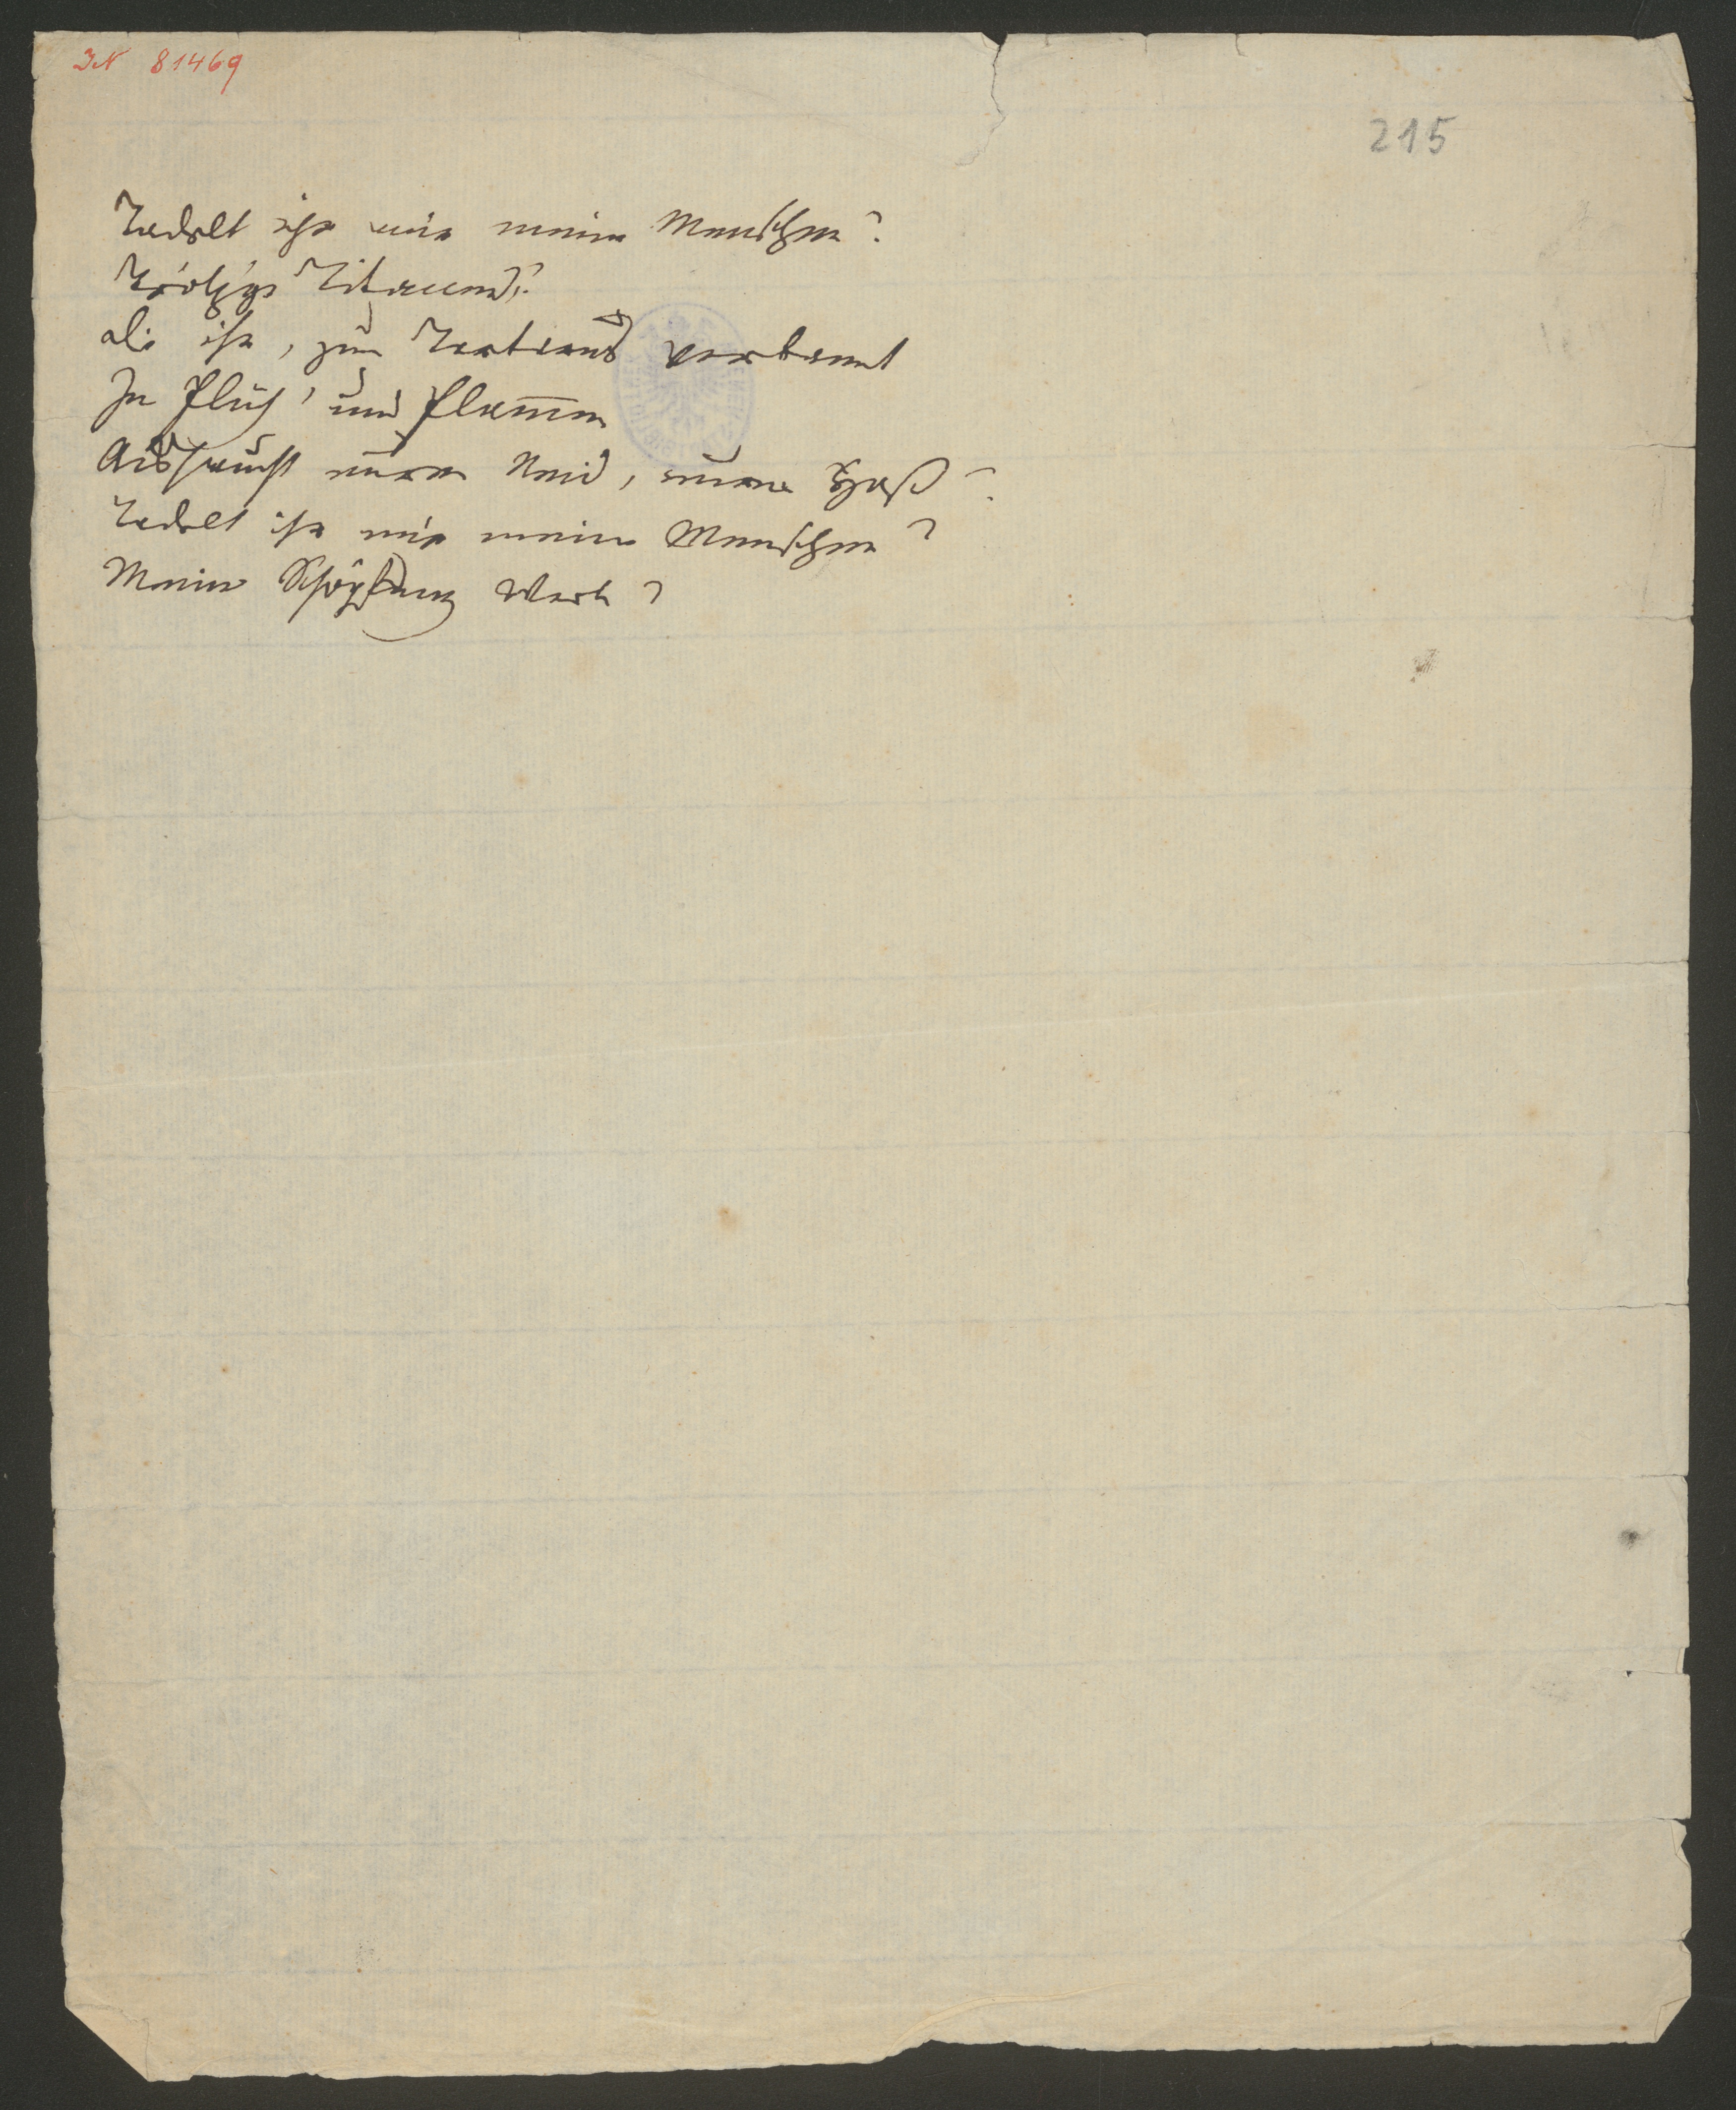 IN 81469
215
Tadelt ihr mir meine Menschen?
Trotz'ge Titanend?
die ihr, zum Tartarus verbannt
In Fluch' und Flammen
Aushaucht euren Neid, euren Haß?
Tadelt ihr mir meine Menschen?
Meiner Schöpfung Werk?